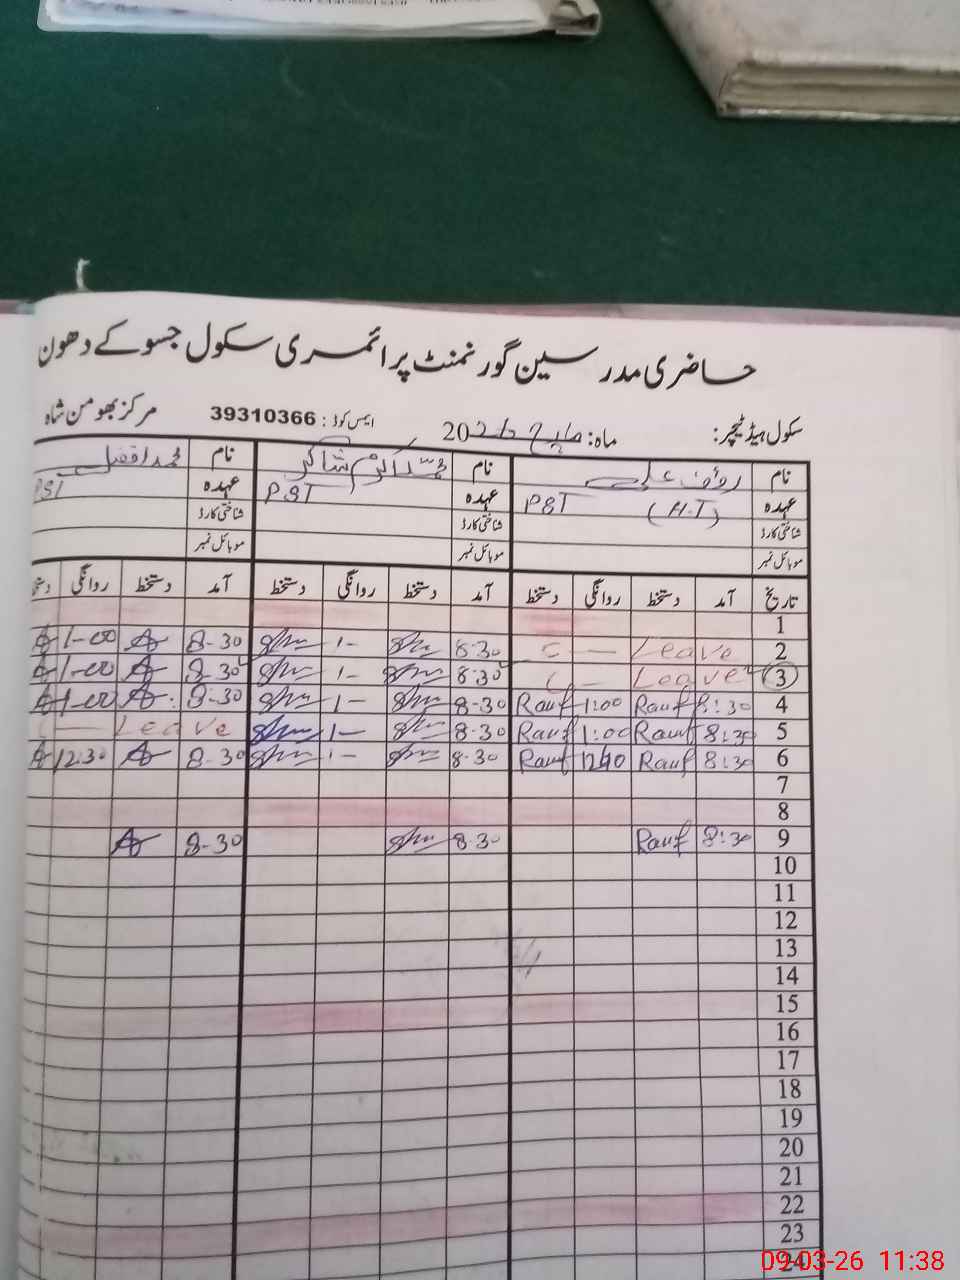 حاضری مدرسین گورنمنٹ پرائمری سکول جسوکے دھون
سکول ہیڈ ٹیچر: ماہ: مارچ 2026 ایمس کوڈ: 39310366 مرکز بھومن شاہ
نام رؤف علی نام محمد اکرم شاکر نام محمد افضل
عہدہ PST (H.T) عہدہ PST عہدہ PST
شناختی کارڈ شناختی کارڈ شناختی کارڈ
موبائل نمبر موبائل نمبر موبائل نمبر
تاریخ آمد دستخط روانگی دستخط آمد دستخط روانگی دستخط آمد دستخط روانگی دستخط
1
2 C — Leave 8-30 1- 8-30 1-00
3 C — Leave 8-30 1- 8-30 1-00
4 8:30 Rauf 1:00 Rauf 8-30 1- 8-30 1-00
5 8:30 Rauf 1:00 Rauf 8-30 1- — Leave
6 8:30 Rauf Rauf 8-30 1- 8-30 12.30
7
8
9 8:30 Rauf 8-30 8-30
10
11
12
13
14
15
16
17
18
19
20
21
22
23
24
09-03-26 11:38